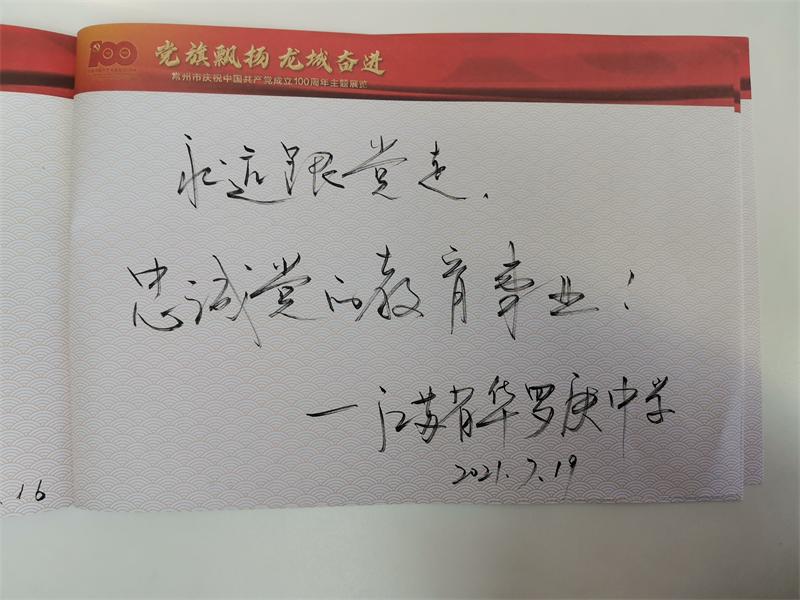 100
党旗飘扬 龙城奋进
常州市庆祝中国共产党成立100周年主题展览
永远跟党走、
忠诚党的教育事业！
—江苏省华罗庚中学
2021.7.19
.16